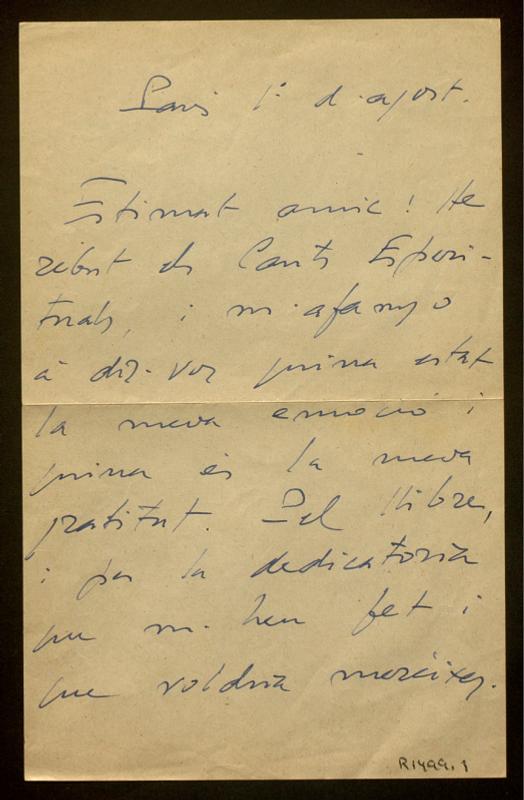 Paris 1º d'agost.
Estimat amic! He
rebut els Cants Espiri-
tuals, i m'afanyo
a dir-vos quina estat
la meva emoció i
quina és la meva
gratitut. Pel llibre,
i per la dedicatoria
que m'heu fet i
que voldria mereixer.
R1499.1